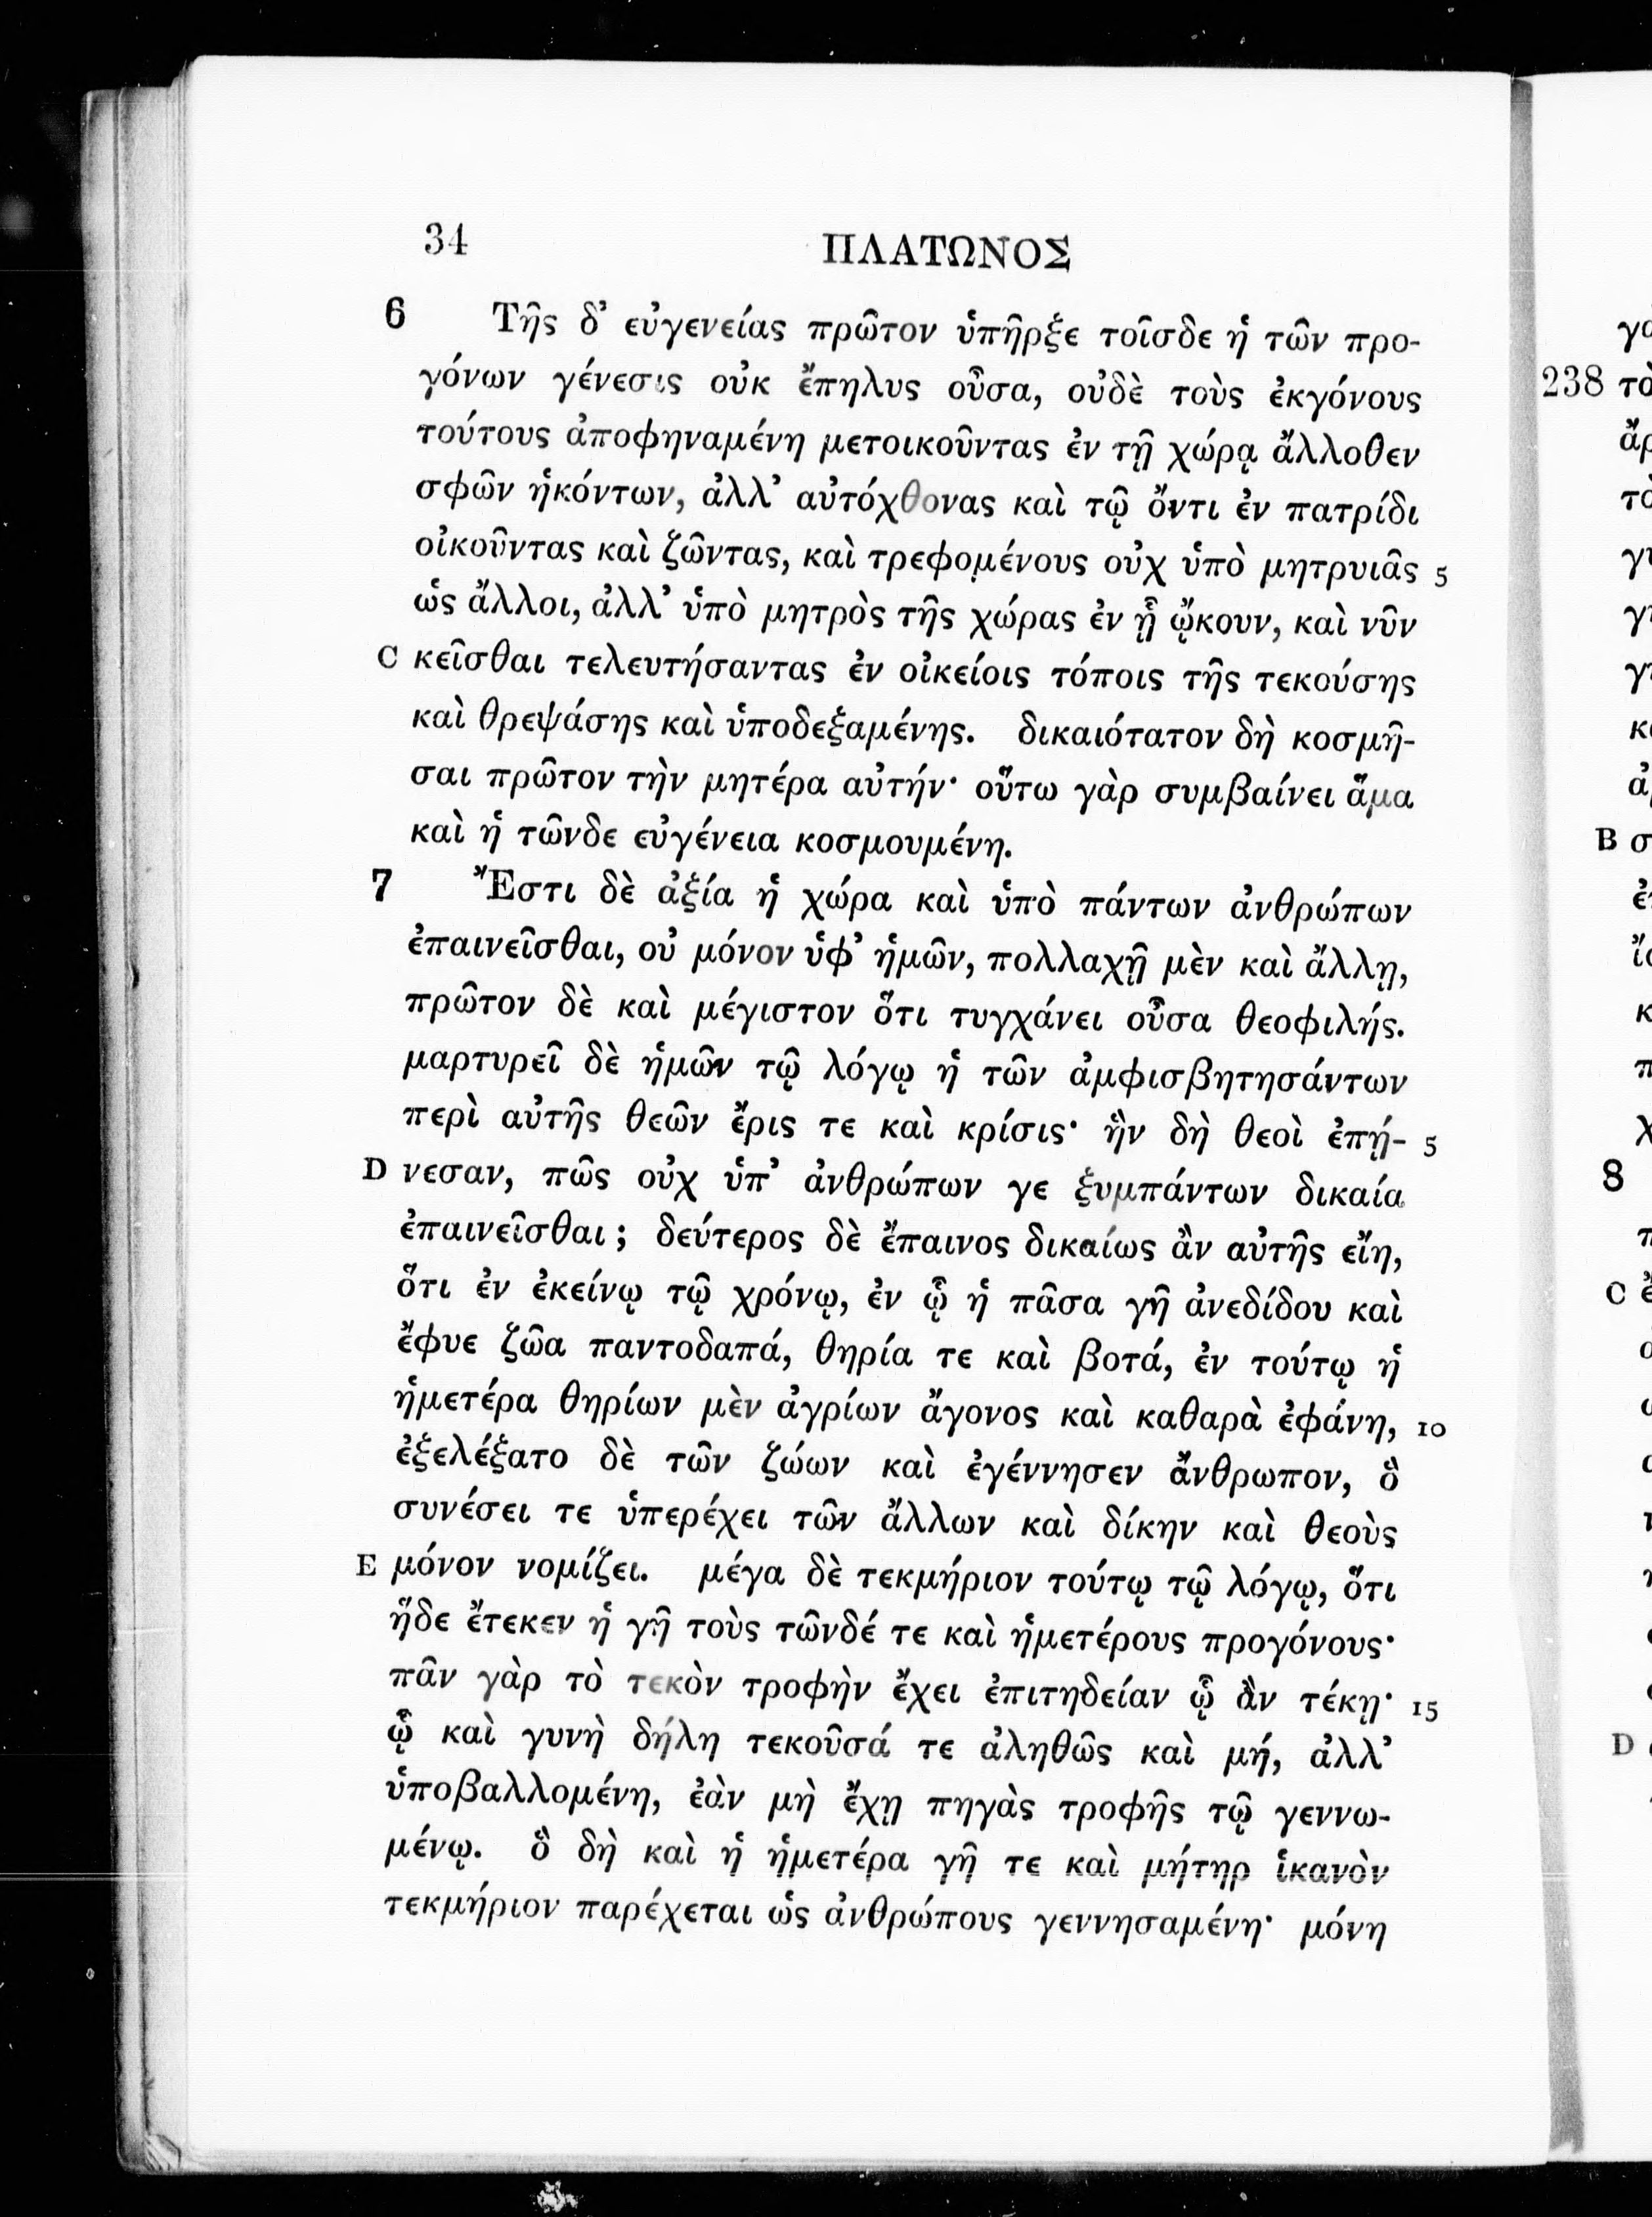 34 ΠΛΑΤΩΝΟΣ
6 Τῆς δ’ εὐγενείας πρῶτον ὑπῆρξε τοῖσδε ἡ τῶν προ-
γόνων γένεσις οὐκ ἔπηλυς οὖσα, οὐδὲ τοὺς ἐκγόνους
τούτους ἀποφηναμένη μετοικοῦντας ἐν τῇ χώρᾳ ἄλλοθεν
σφῶν ἡκόντων, ἀλλ’ αὐτόχθονας καὶ τῷ ὄντι ἐν πατρίδι
οἰκοῦντας καὶ ζῶντας, καὶ τρεφομένους οὐχ ὑπὸ μητρυιᾶς 5
ὡς ἄλλοι, ἀλλ’ ὑπὸ μητρὸς τῆς χώρας ἐν ᾗ ᾤκουν, καὶ νῦν
C κεῖσθαι τελευτήσαντας ἐν οἰκείοις τόποις τῆς τεκούσης
καὶ θρεψάσης καὶ ὑποδεξαμένης. δικαιότατον δὴ κοσμῆ-
σαι πρῶτον τὴν μητέρα αὐτήν· οὕτω γὰρ συμβαίνει ἅμα
καὶ ἡ τῶνδε εὐγένεια κοσμουμένη.
7 Ἔστι δὲ ἀξία ἡ χώρα καὶ ὑπὸ πάντων ἀνθρώπων
ἐπαινεῖσθαι, οὐ μόνον ὑφ’ ἡμῶν, πολλαχῇ μὲν καὶ ἄλλῃ,
πρῶτον δὲ καὶ μέγιστον ὅτι τυγχάνει οὖσα θεοφιλής.
μαρτυρεῖ δὲ ἡμῶν τῷ λόγῳ ἡ τῶν ἀμφισβητησάντων
περὶ αὐτῆς θεῶν ἔρις τε καὶ κρίσις· ἣν δὴ θεοὶ ἐπῄ- 5
D νεσαν, πῶς οὐχ ὑπ’ ἀνθρώπων γε ξυμπάντων δικαία
ἐπαινεῖσθαι; δεύτερος δὲ ἔπαινος δικαίως ἂν αὐτῆς εἴη,
ὅτι ἐν ἐκείνῳ τῷ χρόνῳ, ἐν ᾧ ἡ πᾶσα γῆ ἀνεδίδου καὶ
ἔφυε ζῶα παντοδαπά, θηρία τε καὶ βοτά, ἐν τούτῳ ἡ
ἡμετέρα θηρίων μὲν ἀγρίων ἄγονος καὶ καθαρὰ ἐφάνη, 10
ἐξελέξατο δὲ τῶν ζώων καὶ ἐγέννησεν ἄνθρωπον, ὃ
συνέσει τε ὑπερέχει τῶν ἄλλων καὶ δίκην καὶ θεοὺς
E μόνον νομίζει. μέγα δὲ τεκμήριον τούτῳ τῷ λόγῳ, ὅτι
ἥδε ἔτεκεν ἡ γῆ τοὺς τῶνδέ τε καὶ ἡμετέρους προγόνους·
πᾶν γὰρ τὸ τεκὸν τροφὴν ἔχει ἐπιτηδείαν ᾧ ἂν τέκῃ· 15
ᾧ καὶ γυνὴ δήλη τεκοῦσά τε ἀληθῶς καὶ μή, ἀλλ’
ὑποβαλλομένη, ἐὰν μὴ ἔχῃ πηγὰς τροφῆς τῷ γεννω-
μένῳ. ὃ δὴ καὶ ἡ ἡμετέρα γῆ τε καὶ μήτηρ ἱκανὸν
τεκμήριον παρέχεται ὡς ἀνθρώπους γεννησαμένη· μόνη
238
B
8
C
D